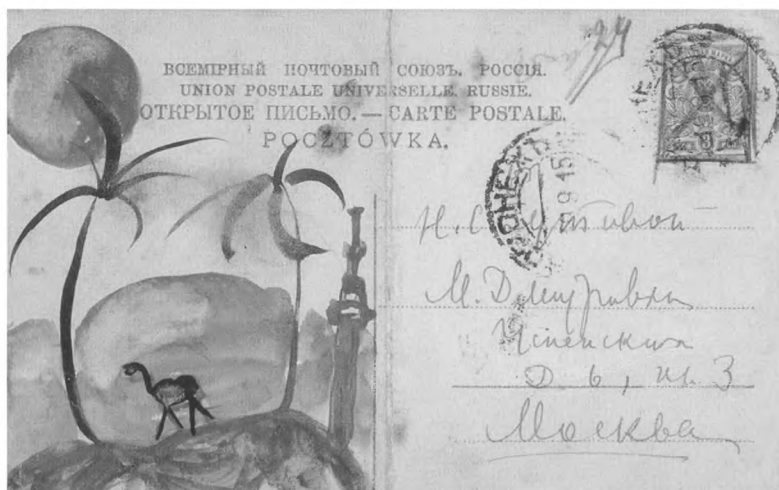 24
ВСЕМІРНЫЙ ПОЧТОВЫЙ СОЮЗЪ. РОССІЯ.
UNION POSTALE UNIVERSELLE. RUSSIE.
ОТКРЫТОЕ ПИСЬМО. — CARTE POSTALE.
POCZTÓWKA.
9 15
Н. С.
М. Дмитровка
Д. 6, 3
Москва